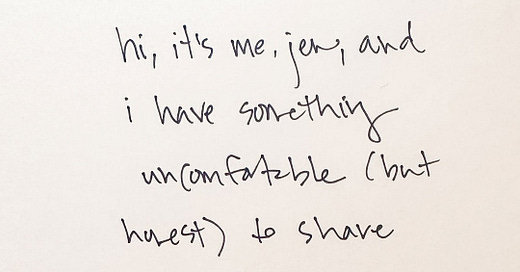 hi, it's me, jen, and
i have something
uncomfortable (but
honest) to share